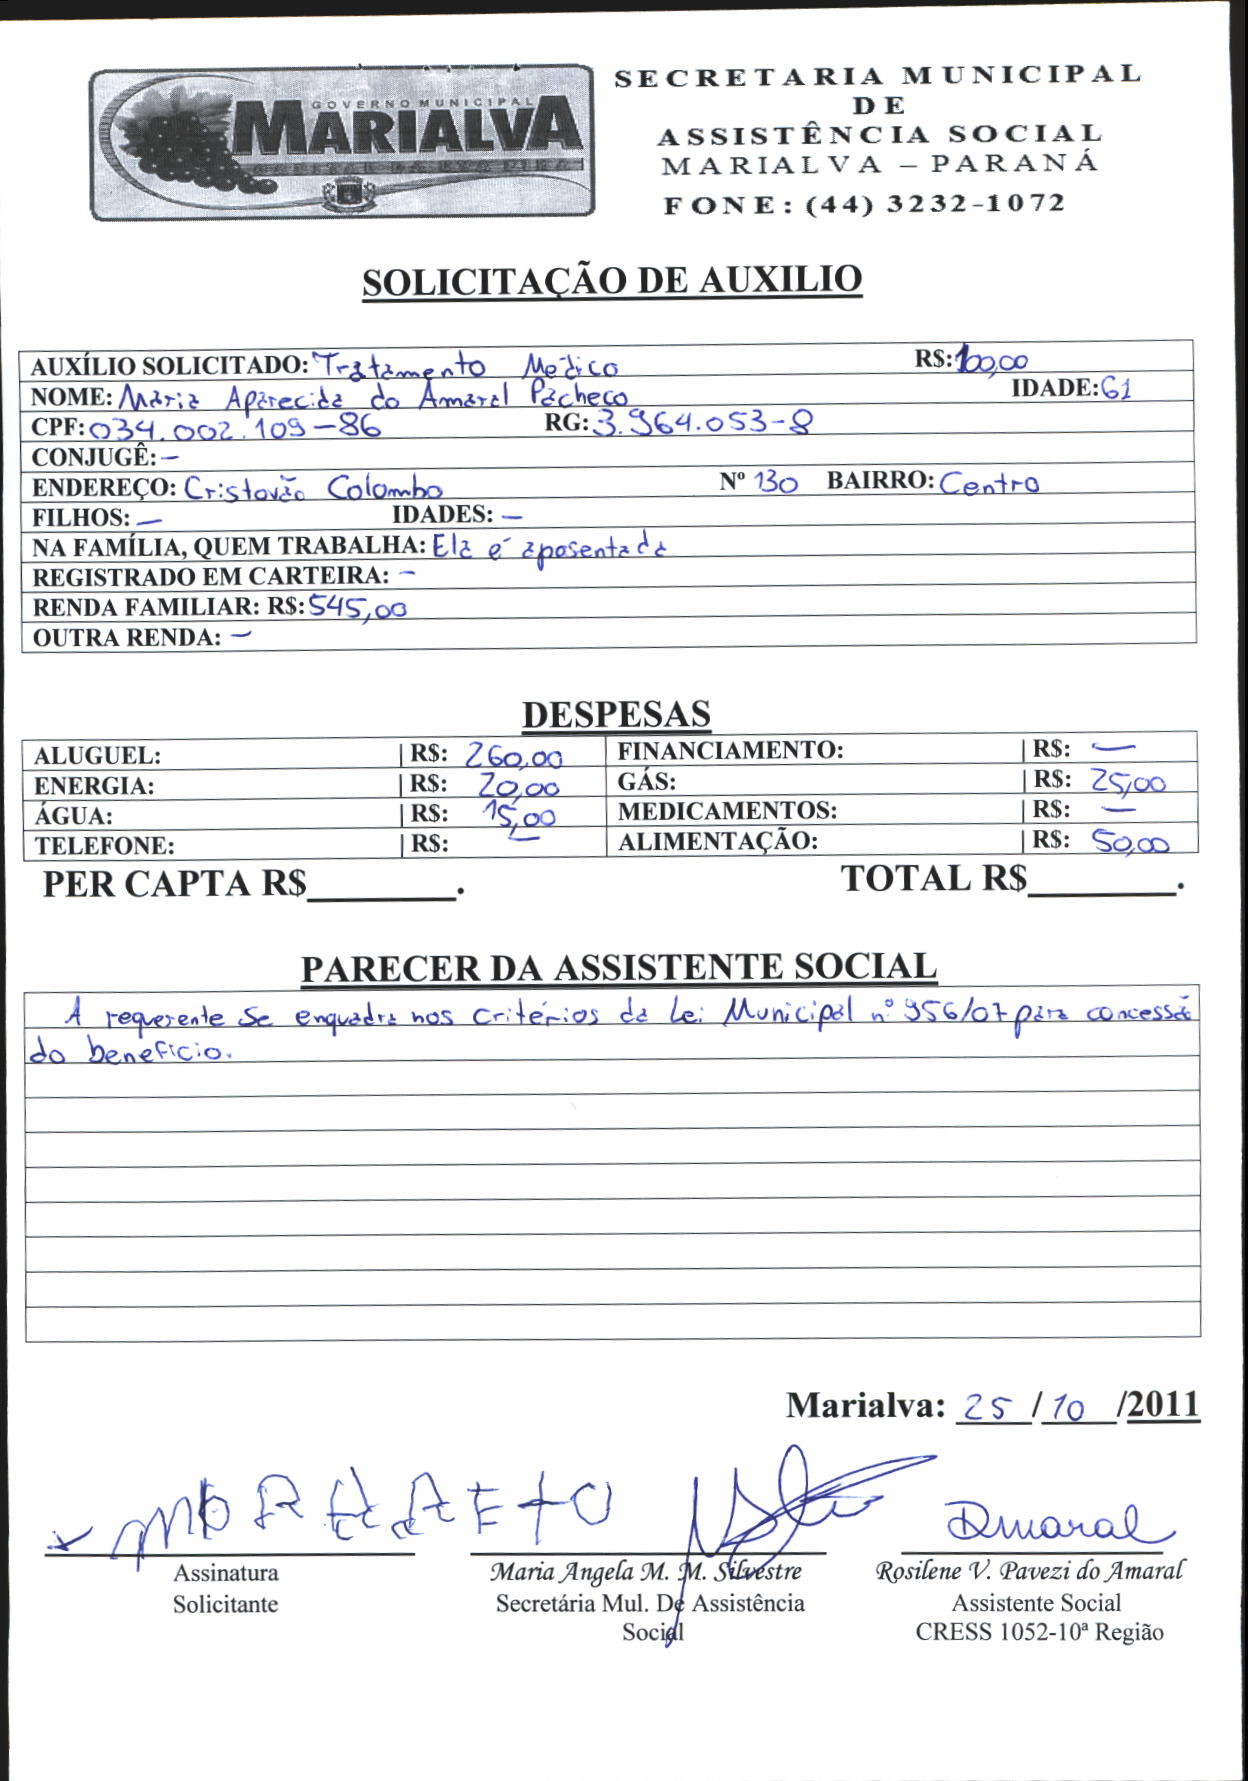 GOVERNO MUNICIPAL
MARIALVA
SECRETARIA MUNICIPAL
DE
ASSISTÊNCIA SOCIAL
MARIALVA – PARANÁ
FONE: (44) 3232-1072
SOLICITAÇÃO DE AUXILIO
AUXÍLIO SOLICITADO: Tratamento Médico R$: 100,00
NOME: Maria Aparecida do Amaral Pacheco IDADE: 61
CPF: 034.002.109-86 RG: 3.964.053-8
CONJUGÊ: –
ENDEREÇO: Cristovão Colombo Nº 130 BAIRRO: Centro
FILHOS: — IDADES: —
NA FAMÍLIA, QUEM TRABALHA: Ela é aposentada
REGISTRADO EM CARTEIRA: –
RENDA FAMILIAR: R$: 545,00
OUTRA RENDA: –
DESPESAS
ALUGUEL: | R$: 260,00 FINANCIAMENTO: | R$: —
ENERGIA: | R$: 20,00 GÁS: | R$: 25,00
ÁGUA: | R$: 15,00 MEDICAMENTOS: | R$: —
TELEFONE: | R$: — ALIMENTAÇÃO: | R$: 50,00
PER CAPTA R$________. TOTAL R$________.
PARECER DA ASSISTENTE SOCIAL
A requerente se enquadra nos critérios da Lei Municipal nº 956/07 para concessão
do benefício.
Marialva: 25 / 10 /2011
Amaral
Assinatura Maria Angela M. M. Silvestre Rosilene V. Pavezi do Amaral
Solicitante Secretária Mul. De Assistência Assistente Social
Social CRESS 1052-10ª Região